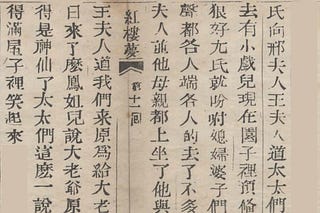 氏向邢夫人王夫人道太太們
去有小戲兒現在園子裡預俻
狠好尤氏就吩咐媳婦婆子們
聲都各人端各人的去了不多
夫人並他母親都上坐了他與
紅樓夢 第十一回
王夫人道我們來原爲給大老
日來了麽鳳姐兒說大老爺原
得是神仙了太太們這麽一說
得滿屋子裡笑起來